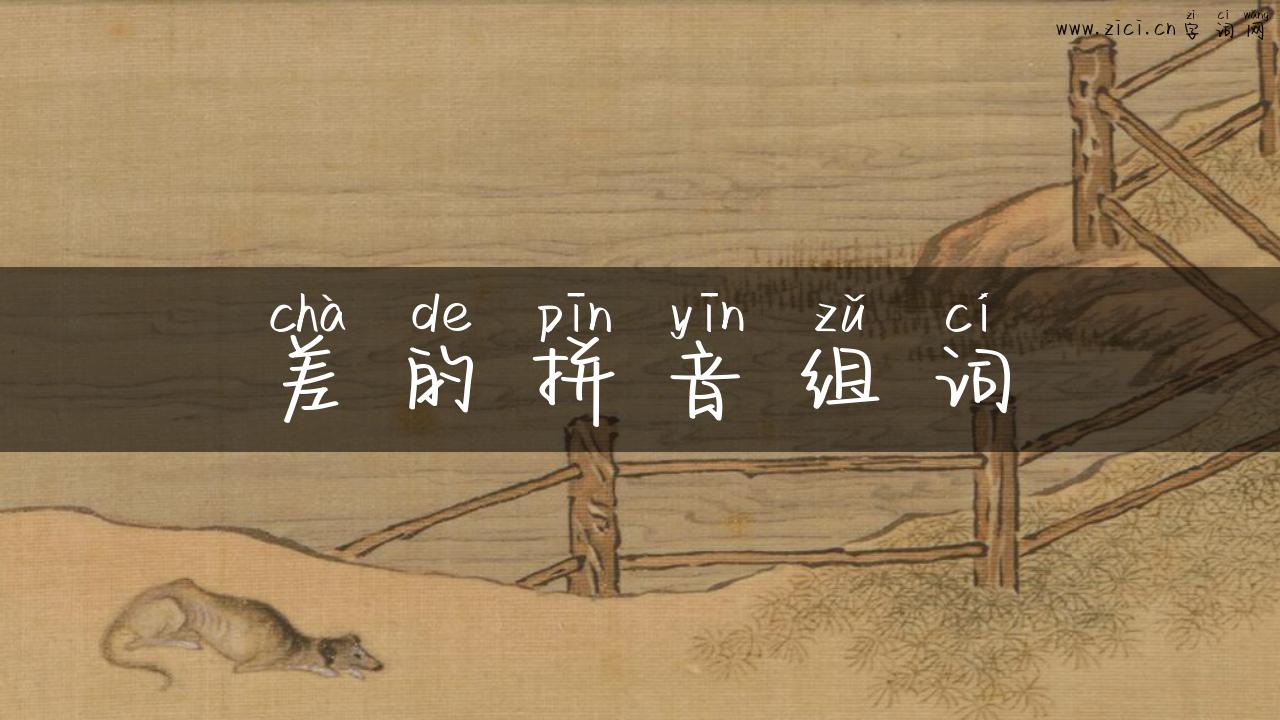 zì cí wǎng
www.zici.cn 字词网
chà de pīn yīn zǔ cí
差的拼音组词